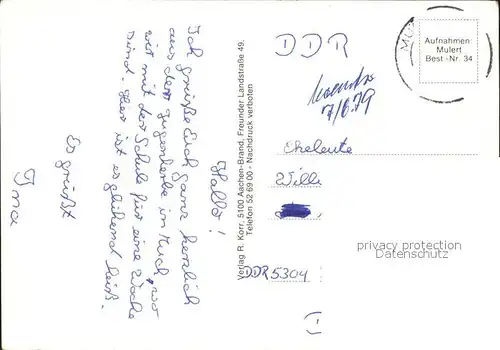 Hallo!
Ich grüße Euch ganz herzlich
aus der Jugendherberge in
wir mit der Schule für eine Woche
sind. Hier ist es glühend heiß.
Es grüßt
Ina
Verlag R. Korr, 5100 Aachen-Brand, Freunder Landstraße 49,
Telefon 52 69 00 - Nachdruck verboten
DDR
7/6.79
Aufnahmen:
Mulert
Best.-Nr. 34
Eheleute
Willi
DDR 5304
privacy protection
Datenschutz